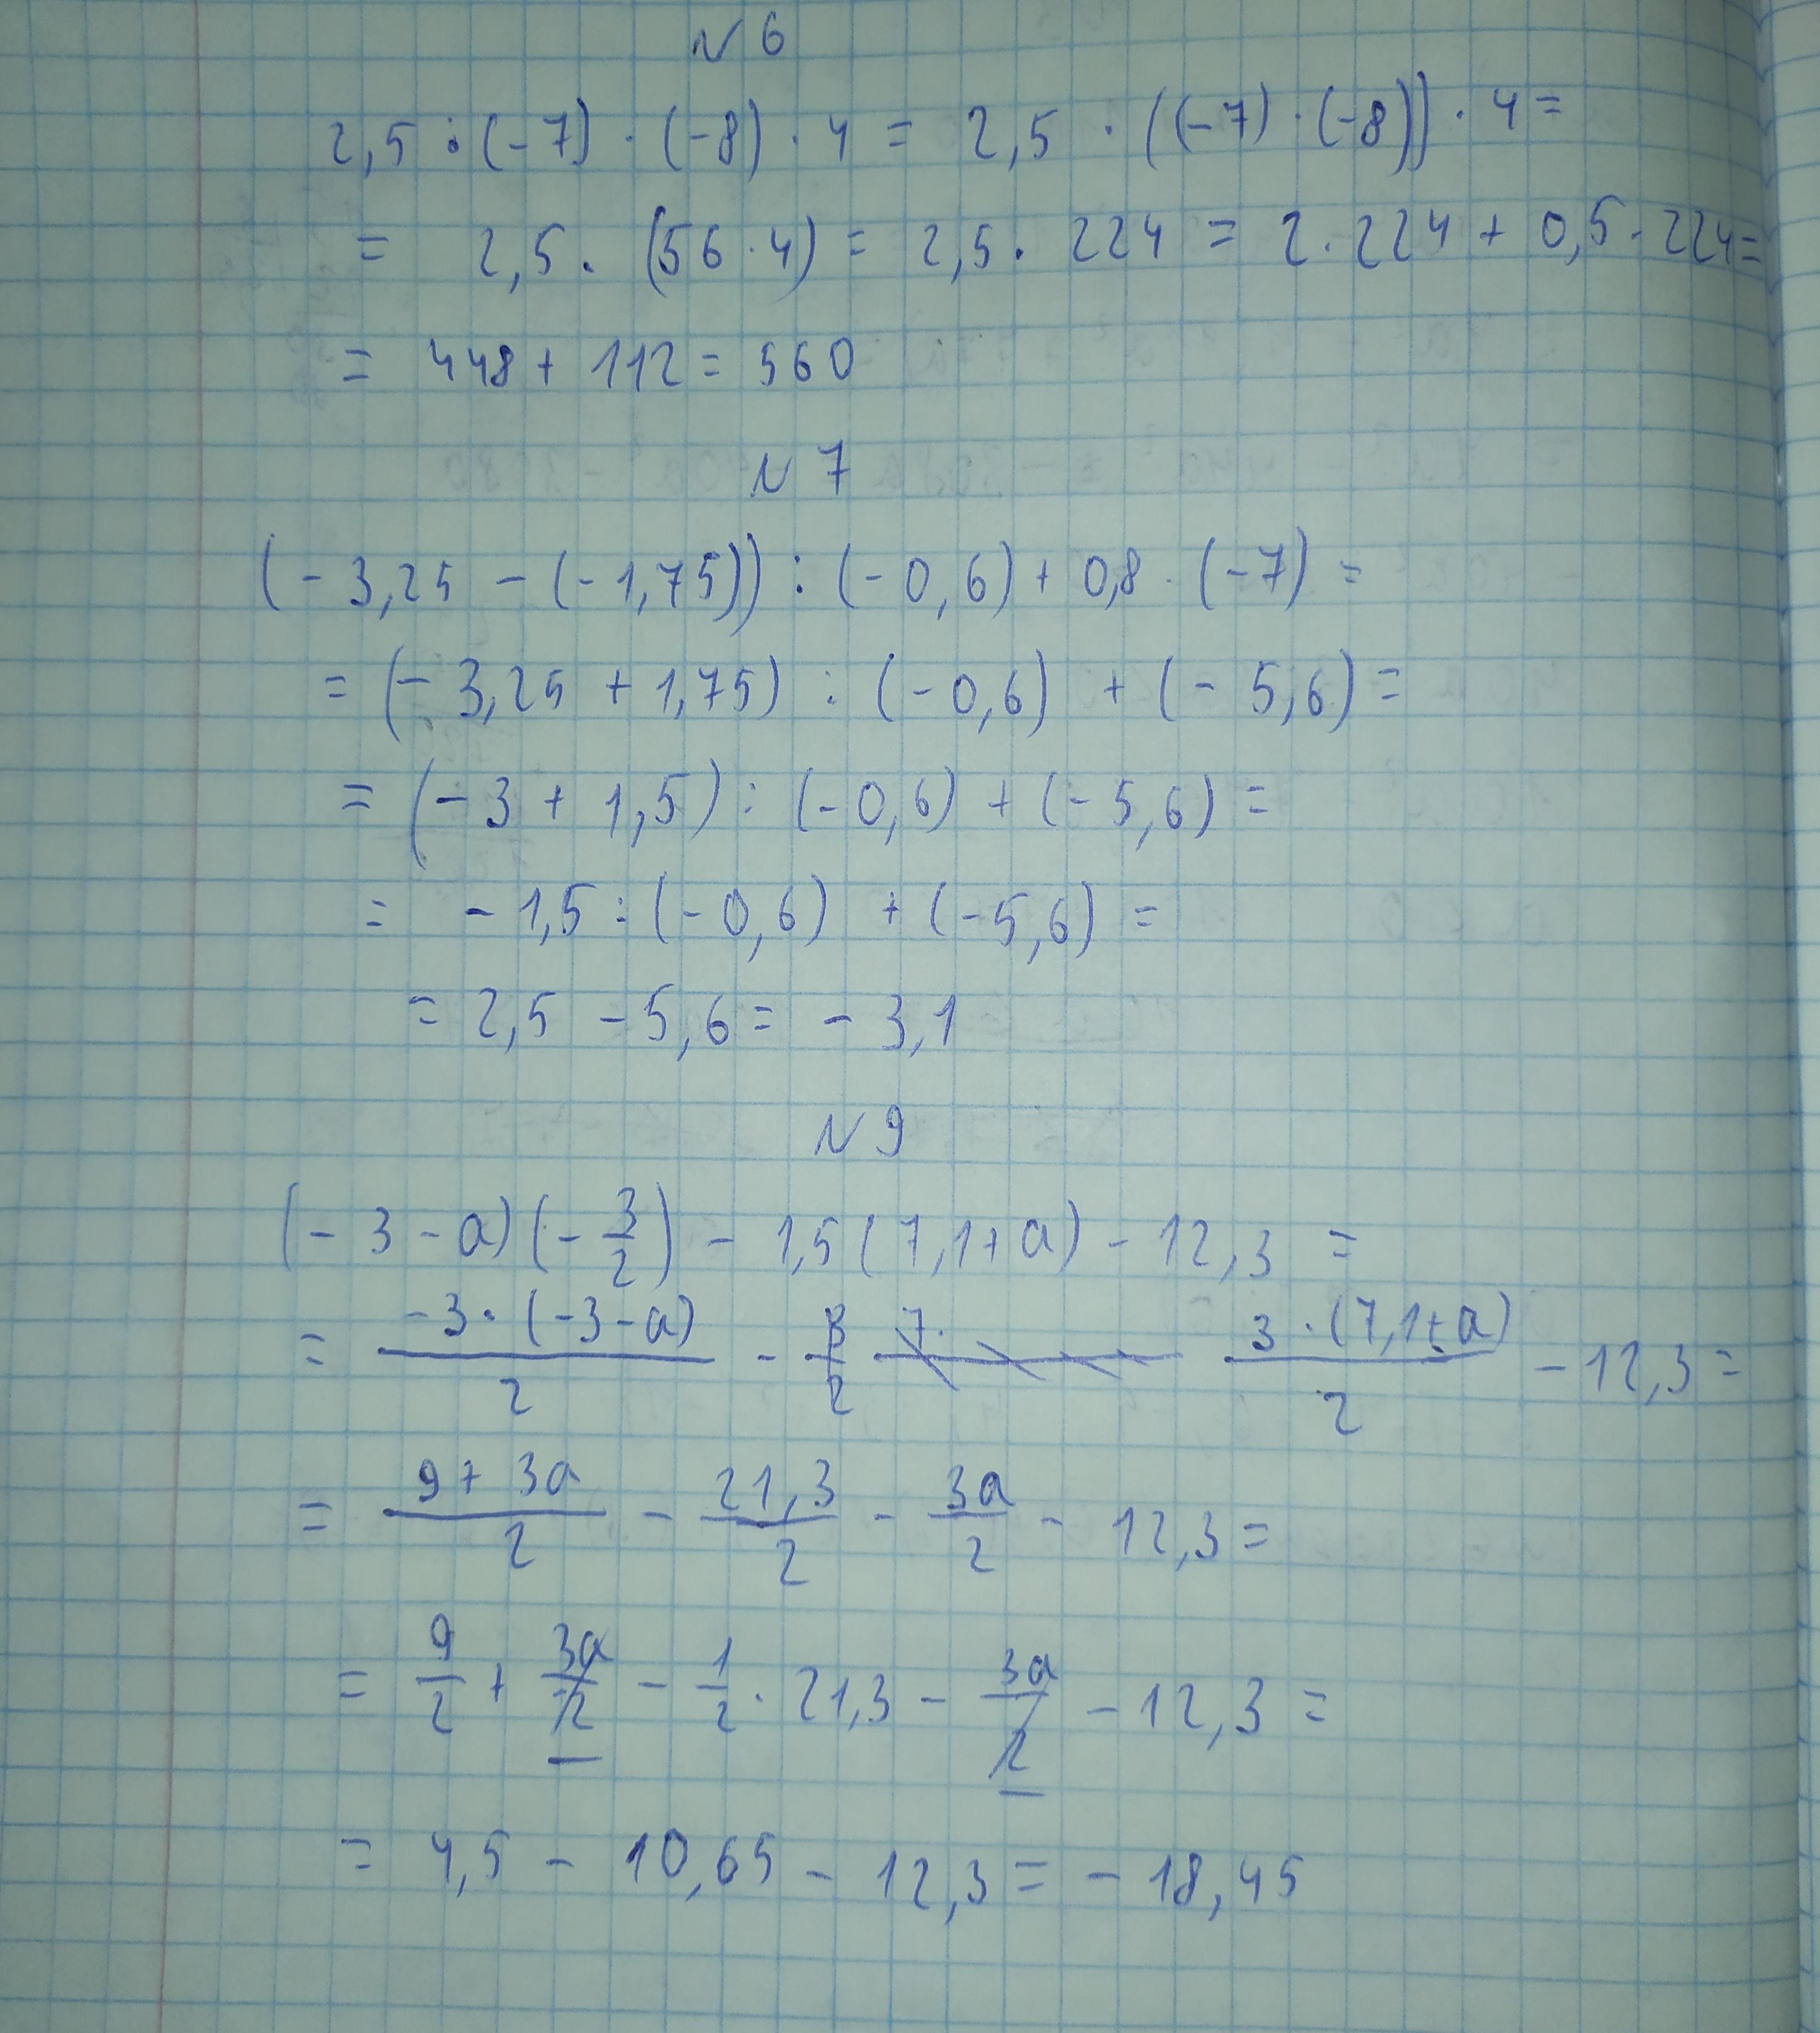 N 6
2,5 · (-7) · (-8) · 4 = 2,5 · ((-7) · (-8)) · 4 =
= 2,5 · (56 · 4) = 2,5 · 224 = 2 · 224 + 0,5 · 224 =
= 448 + 112 = 560
N 7
(-3,25 - (-1,75)) : (-0,6) + 0,8 · (-7) =
= (-3,25 + 1,75) : (-0,6) + (-5,6) =
= (-3 + 1,5) : (-0,6) + (-5,6) =
= -1,5 : (-0,6) + (-5,6) =
= 2,5 - 5,6 = -3,1
N 9
(-3 - a)(-3/2) - 1,5(7,1 + a) - 12,3 =
= -3 · (-3 - a)/2 - 3/2 7· 3 · (7,1 + a)/2 - 12,3 =
= 9 + 3a/2 - 21,3/2 - 3a/2 - 12,3 =
= 9/2 + 3a/2 - 1/2 · 21,3 - 3a/2 - 12,3 =
= 4,5 - 10,65 - 12,3 = -18,45